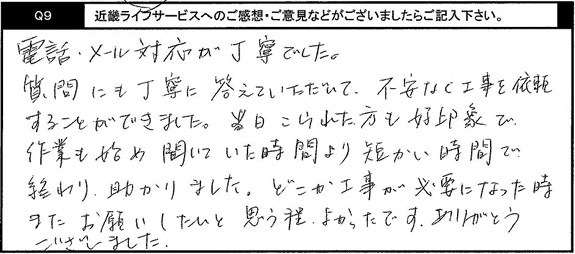 Q9 近畿ライフサービスへのご感想・ご意見などがございましたらご記入下さい。
電話・メール対応が丁寧でした。
質問にも丁寧に答えていただいて、不安なく工事を依頼
することができました。当日こられた方も好印象で、
作業も始め聞いていた時間より短かい時間で
終わり、助かりました。どこか工事が必要になった時
またお願いしたいと思う程、よかったです。ありがとう
ございました。